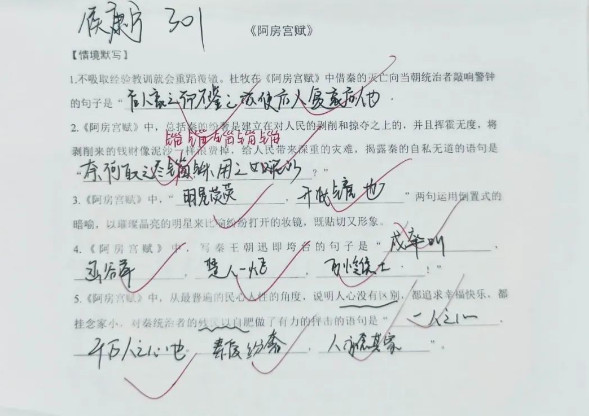 301
《阿房宫赋》
【情境默写】
1.不吸取经验教训就会重蹈覆辙。杜牧在《阿房宫赋》中借秦的灭亡向当朝统治者敲响警钟
的句子是“
后人哀之而不鉴之亦使后人复哀后人也
2.《阿房宫赋》中，总括秦的纷奢是建立在对人民的剥削和掠夺之上的，并且挥霍无度，将
锱 锱 锱 锱 锱
剥削来的钱财像泥沙一样浪费掉，给人民带来深重的灾难，揭露秦的自私无道的语句是
“奈何取之尽锱铢用之如泥沙？”
3.《阿房宫赋》中，“明星荧荧，开妆镜也”两句运用倒置式的
暗喻，以璀璨晶亮的明星来比喻纷纷打开的妆镜，既贴切又形象。
4.《阿房宫赋》中，写秦王朝迅即垮台的句子是“戍卒叫，
函谷举，楚人一炬，可怜焦土！”
5.《阿房宫赋》中，从最普遍的民心人性的角度，说明人心没有区别，都追求幸福快乐，都
挂念家小。对秦统治者的残民以自肥做了有力的抨击的语句是“一人之心，
千万人之心也，秦爱纷奢，人亦念其家”。